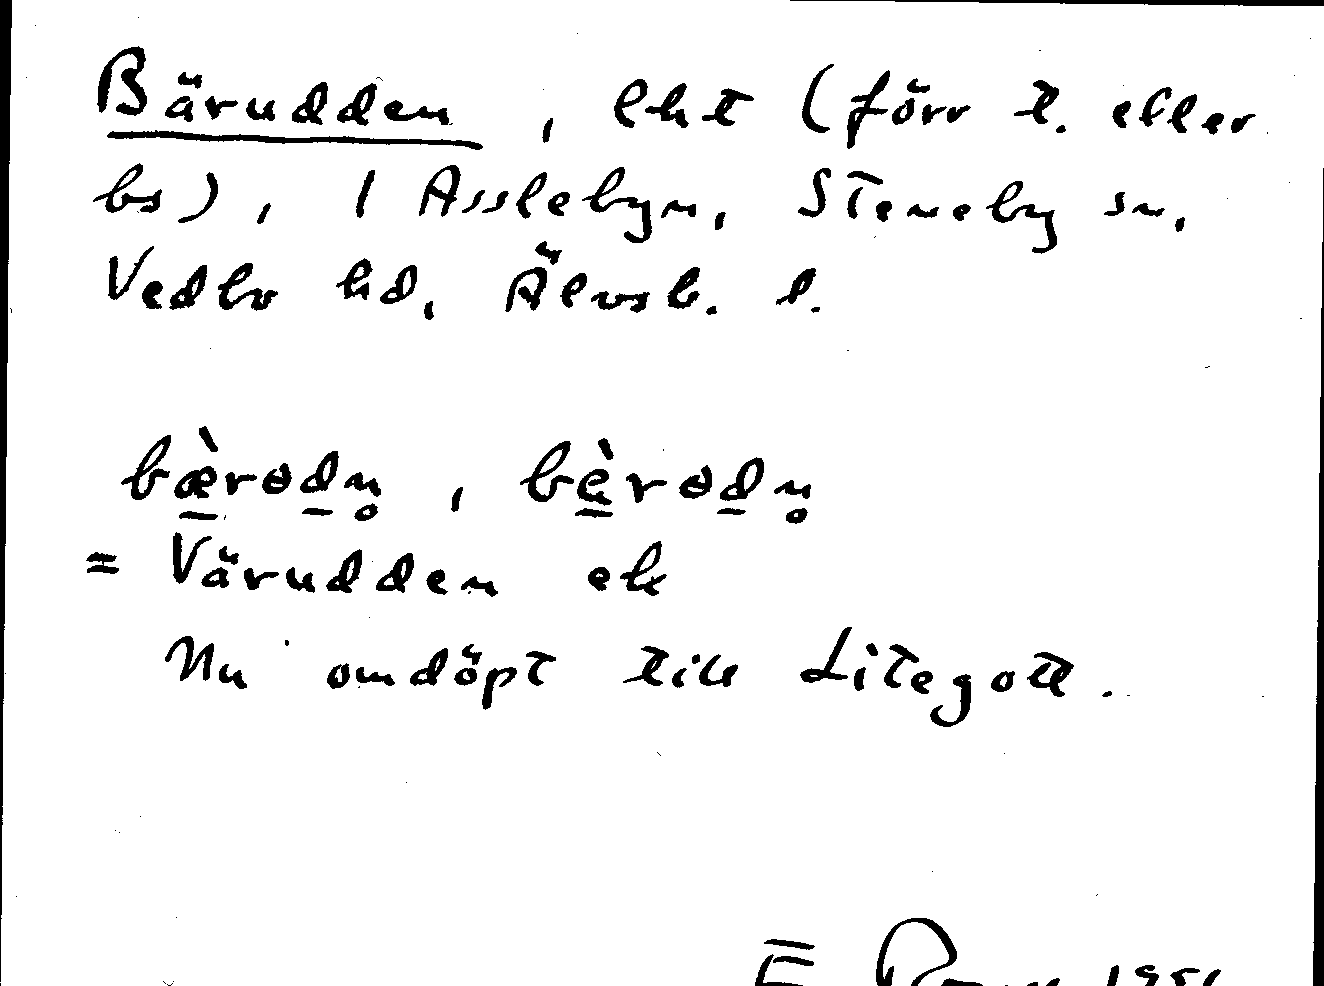 Bärudden, lht (förr t. eller
bs), 1 Asslebyn, Steneby sn,
Vedbo hd, Älvsb. l.
bæ̀rɵdn̥, bèrɵdn̥
= Värudden ek
Nu omdöpt till Litegott.
E